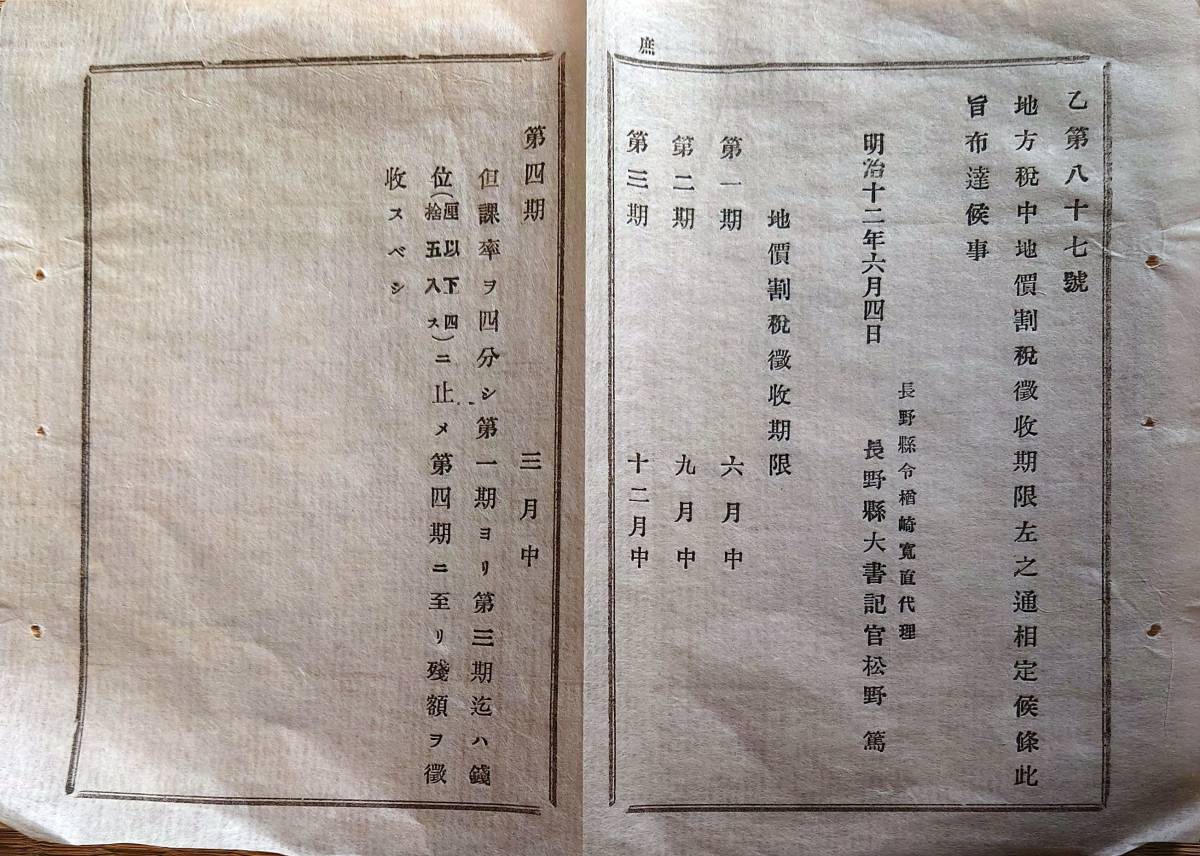 庶
乙第八十七號
地方稅中地價割稅徵收期限左之通相定候條此
旨布達候事
長野縣令楢崎寬直代理
明治十二年六月四日 長野縣大書記官松野篤
地價割稅徵收期限
第一期 六月中
第二期 九月中
第三期 十二月中
第四期 三月中
但課率ヲ四分シ第一期ヨリ第三期迄ハ錢
位(厘以下四捨五入ス)ニ止メ第四期ニ至リ殘額ヲ徵
收スベシ